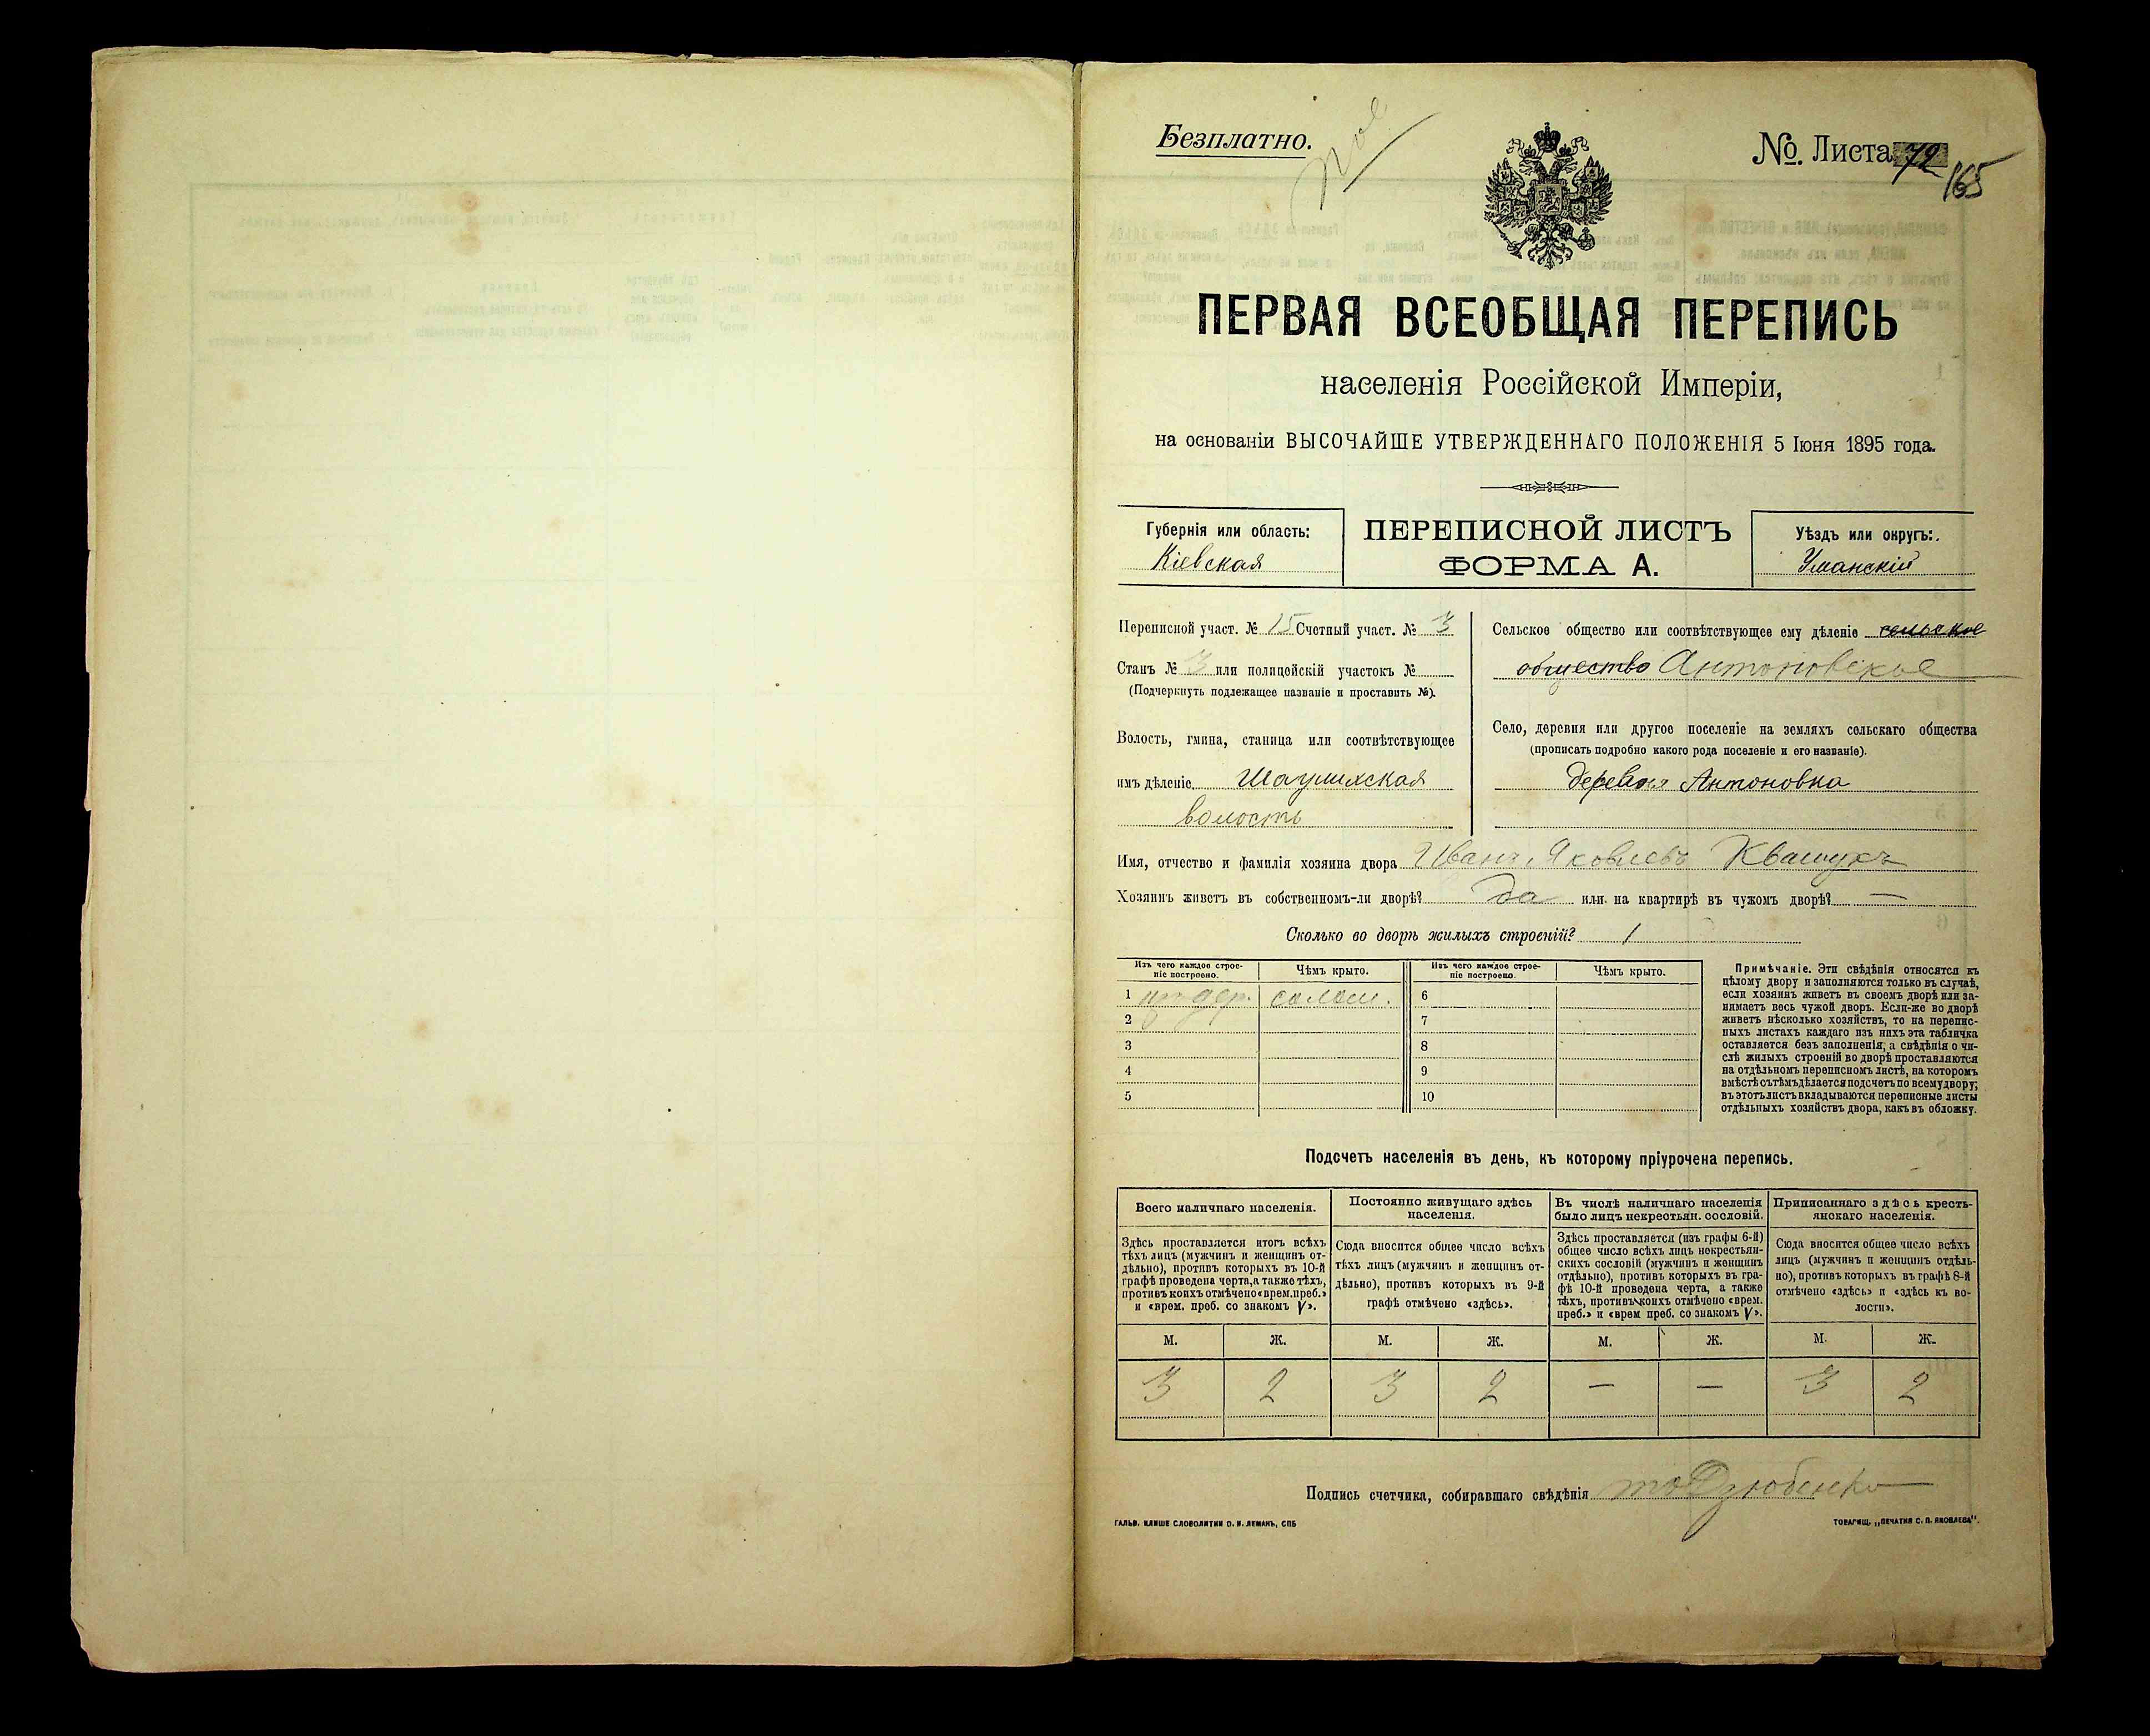 Безплатно.
№ Листа 72
165
ПЕРВАЯ ВСЕОБЩАЯ ПЕРЕПИСЬ
населенія Россійской Имперіи,
на основаніи ВЫСОЧАЙШЕ УТВЕРЖДЕННАГО ПОЛОЖЕНІЯ 5 Іюня 1895 года.
Губернія или область:
Кіевская
ПЕРЕПИСНОЙ ЛИСТЪ
ФОРМА А.
Уѣздъ или округъ:
Уманскій
Переписной участ. № 15 Счетный участ. № 3
Станъ № 3 или полицейскій участокъ №
(Подчеркнуть подлежащее названіе и проставить №).
Волость, гмина, станица или соотвѣтствующее
имъ дѣленіе Шаулихская
волость
Сельское общество или соотвѣтствующее ему дѣленіе сельское
общество Антоновское
Село, деревня или другое поселеніе на земляхъ сельскаго общества
(прописать подробно какого рода поселеніе и его названіе).
деревня Антоновка
Имя, отчество и фамилія хозяина двора Иванъ Яковлевъ Квашукъ
Хозяинъ живетъ въ собственномъ-ли дворѣ? да или на квартирѣ въ чужомъ дворѣ? —
Сколько во дворѣ жилыхъ строеній? 1
Изъ чего каждое строе-
ніе построено.
Чѣмъ крыто.
Изъ чего каждое строе-
ніе построено.
Чѣмъ крыто.
1 солом. 6
2 7
3 8
4 9
5 10
Примѣчаніе. Эти свѣдѣнія относятся къ
цѣлому двору и заполняются только въ случаѣ,
если хозяинъ живетъ въ своемъ дворѣ или за-
нимаетъ весь чужой дворъ. Если-же во дворѣ
живетъ нѣсколько хозяйствъ, то на перепис-
ныхъ листахъ каждаго изъ нихъ эта табличка
оставляется безъ заполненія, а свѣдѣнія о чи-
слѣ жилыхъ строеній во дворѣ проставляются
на отдѣльномъ переписномъ листѣ, на которомъ
вмѣстѣ съ тѣмъ дѣлается подсчетъ по всему двору;
въ этотъ листъ вкладываются переписные листы
отдѣльныхъ хозяйствъ двора, какъ въ обложку.
Подсчетъ населенія въ день, къ которому пріурочена перепись.
Всего наличнаго населенія.
Здѣсь проставляется итогъ всѣхъ
тѣхъ лицъ (мужчинъ и женщинъ от-
дѣльно), противъ которыхъ въ 10-й
графѣ проведена черта, а также тѣхъ,
противъ коихъ отмѣчено «врем. преб.»
и «врем. преб. со знакомъ V».
Постоянно живущаго здѣсь
населенія.
Сюда вносится общее число всѣхъ
тѣхъ лицъ (мужчинъ и женщинъ от-
дѣльно), противъ которыхъ въ 9-й
графѣ отмѣчено «здѣсь».
Въ числѣ наличнаго населенія
было лицъ некрестьян. сословій.
Здѣсь проставляется (изъ графы 6-й)
общее число всѣхъ лицъ некрестьян-
скихъ сословій (мужчинъ и женщинъ
отдѣльно), противъ которыхъ въ гра-
фѣ 10-й проведена черта, а также
тѣхъ, противъ коихъ отмѣчено «врем.
преб.» и «врем преб. со знакомъ V».
Приписаннаго здѣсь кресть-
янскаго населенія.
Сюда вносится общее число всѣхъ
лицъ (мужчинъ и женщинъ отдѣль-
но), противъ которыхъ въ графѣ 8-й
отмѣчено «здѣсь» и «здѣсь къ во-
лости».
М. Ж. М. Ж. М. Ж. М. Ж.
3 2 3 2 — — 3 2
Подпись счетчика, собиравшаго свѣдѣнія Дзюбенко
ГАЛЬВ. КЛИШЕ СЛОВОЛИТНИ О. И. ЛЕМАНЪ, СПБ
ТОВАРИЩ. „ПЕЧАТНЯ С. П. ЯКОВЛЕВА“.